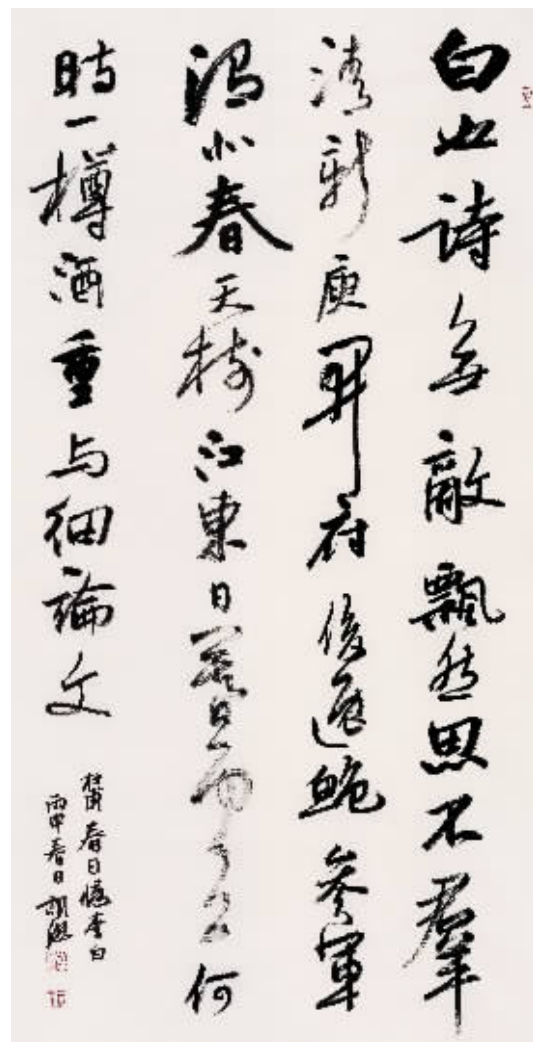 白也詩無敵飄然思不羣
清新庾開府俊逸鮑參軍
渭北春天樹江東日暮雲何
時一樽酒重与細論文
杜甫春日憶李白
丙申春日